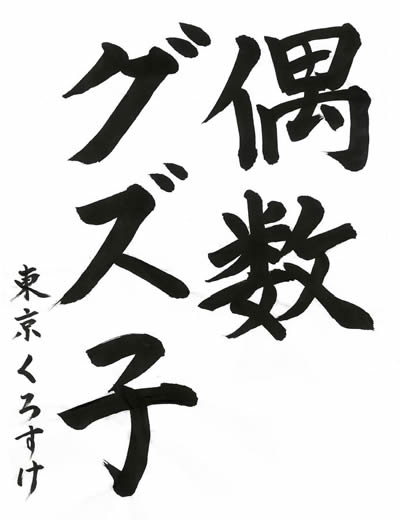 偶数
グズ子
東京くろすけ